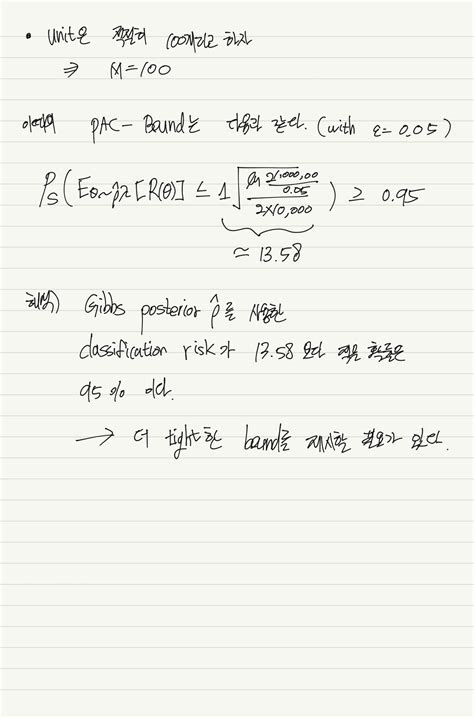 • Unit은 적당히 100개라고 하자
⇒ M=100
이때의 PAC-Bound는 다음과 같다. (with ε=0.05)
P_S( E_θ~ρ̂_λ [R(θ)] ≤ 1 √( / 0.05 / 2×10,000 ) ) ≥ 0.95
≈ 13.58
해석) Gibbs posterior ρ̂를 사용한
classification risk가 13.58 보다 작을 확률은
95% 이다.
→ 더 tight한 bound를 제시할 필요가 있다.